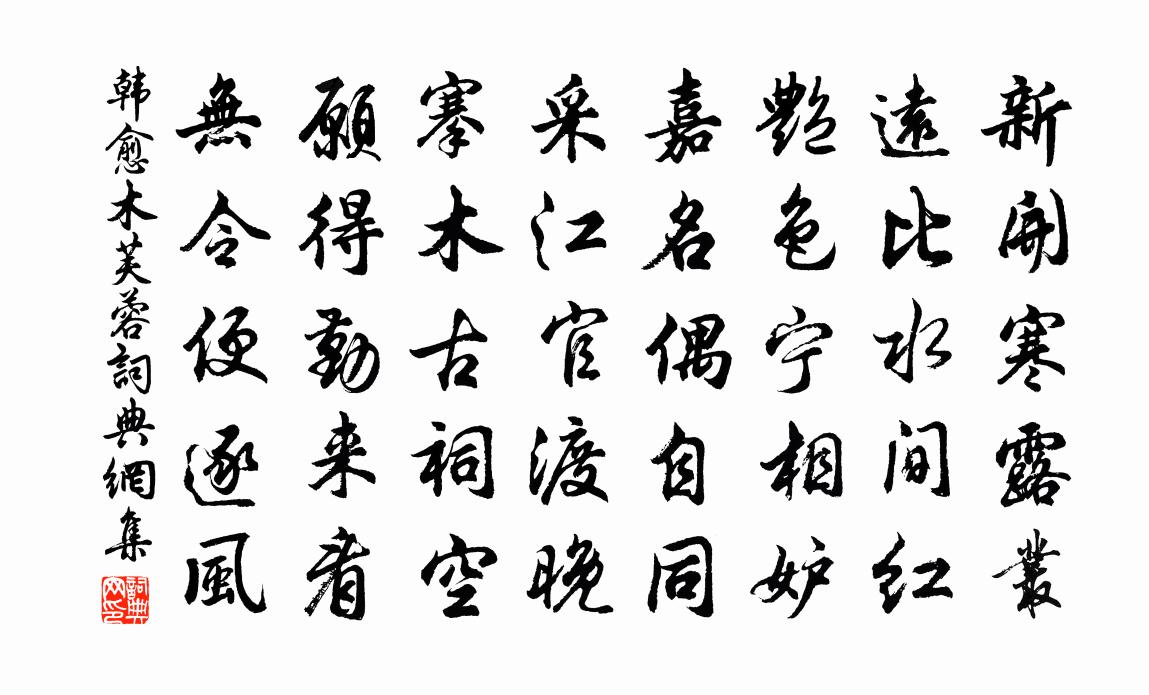 新開寒露叢
遠比水間紅
艷色宁相妒
嘉名偶自同
采江官渡晚
搴木古祠空
願得勤来看
無令便逐風
韩愈木芙蓉詞典網集
詞典网印